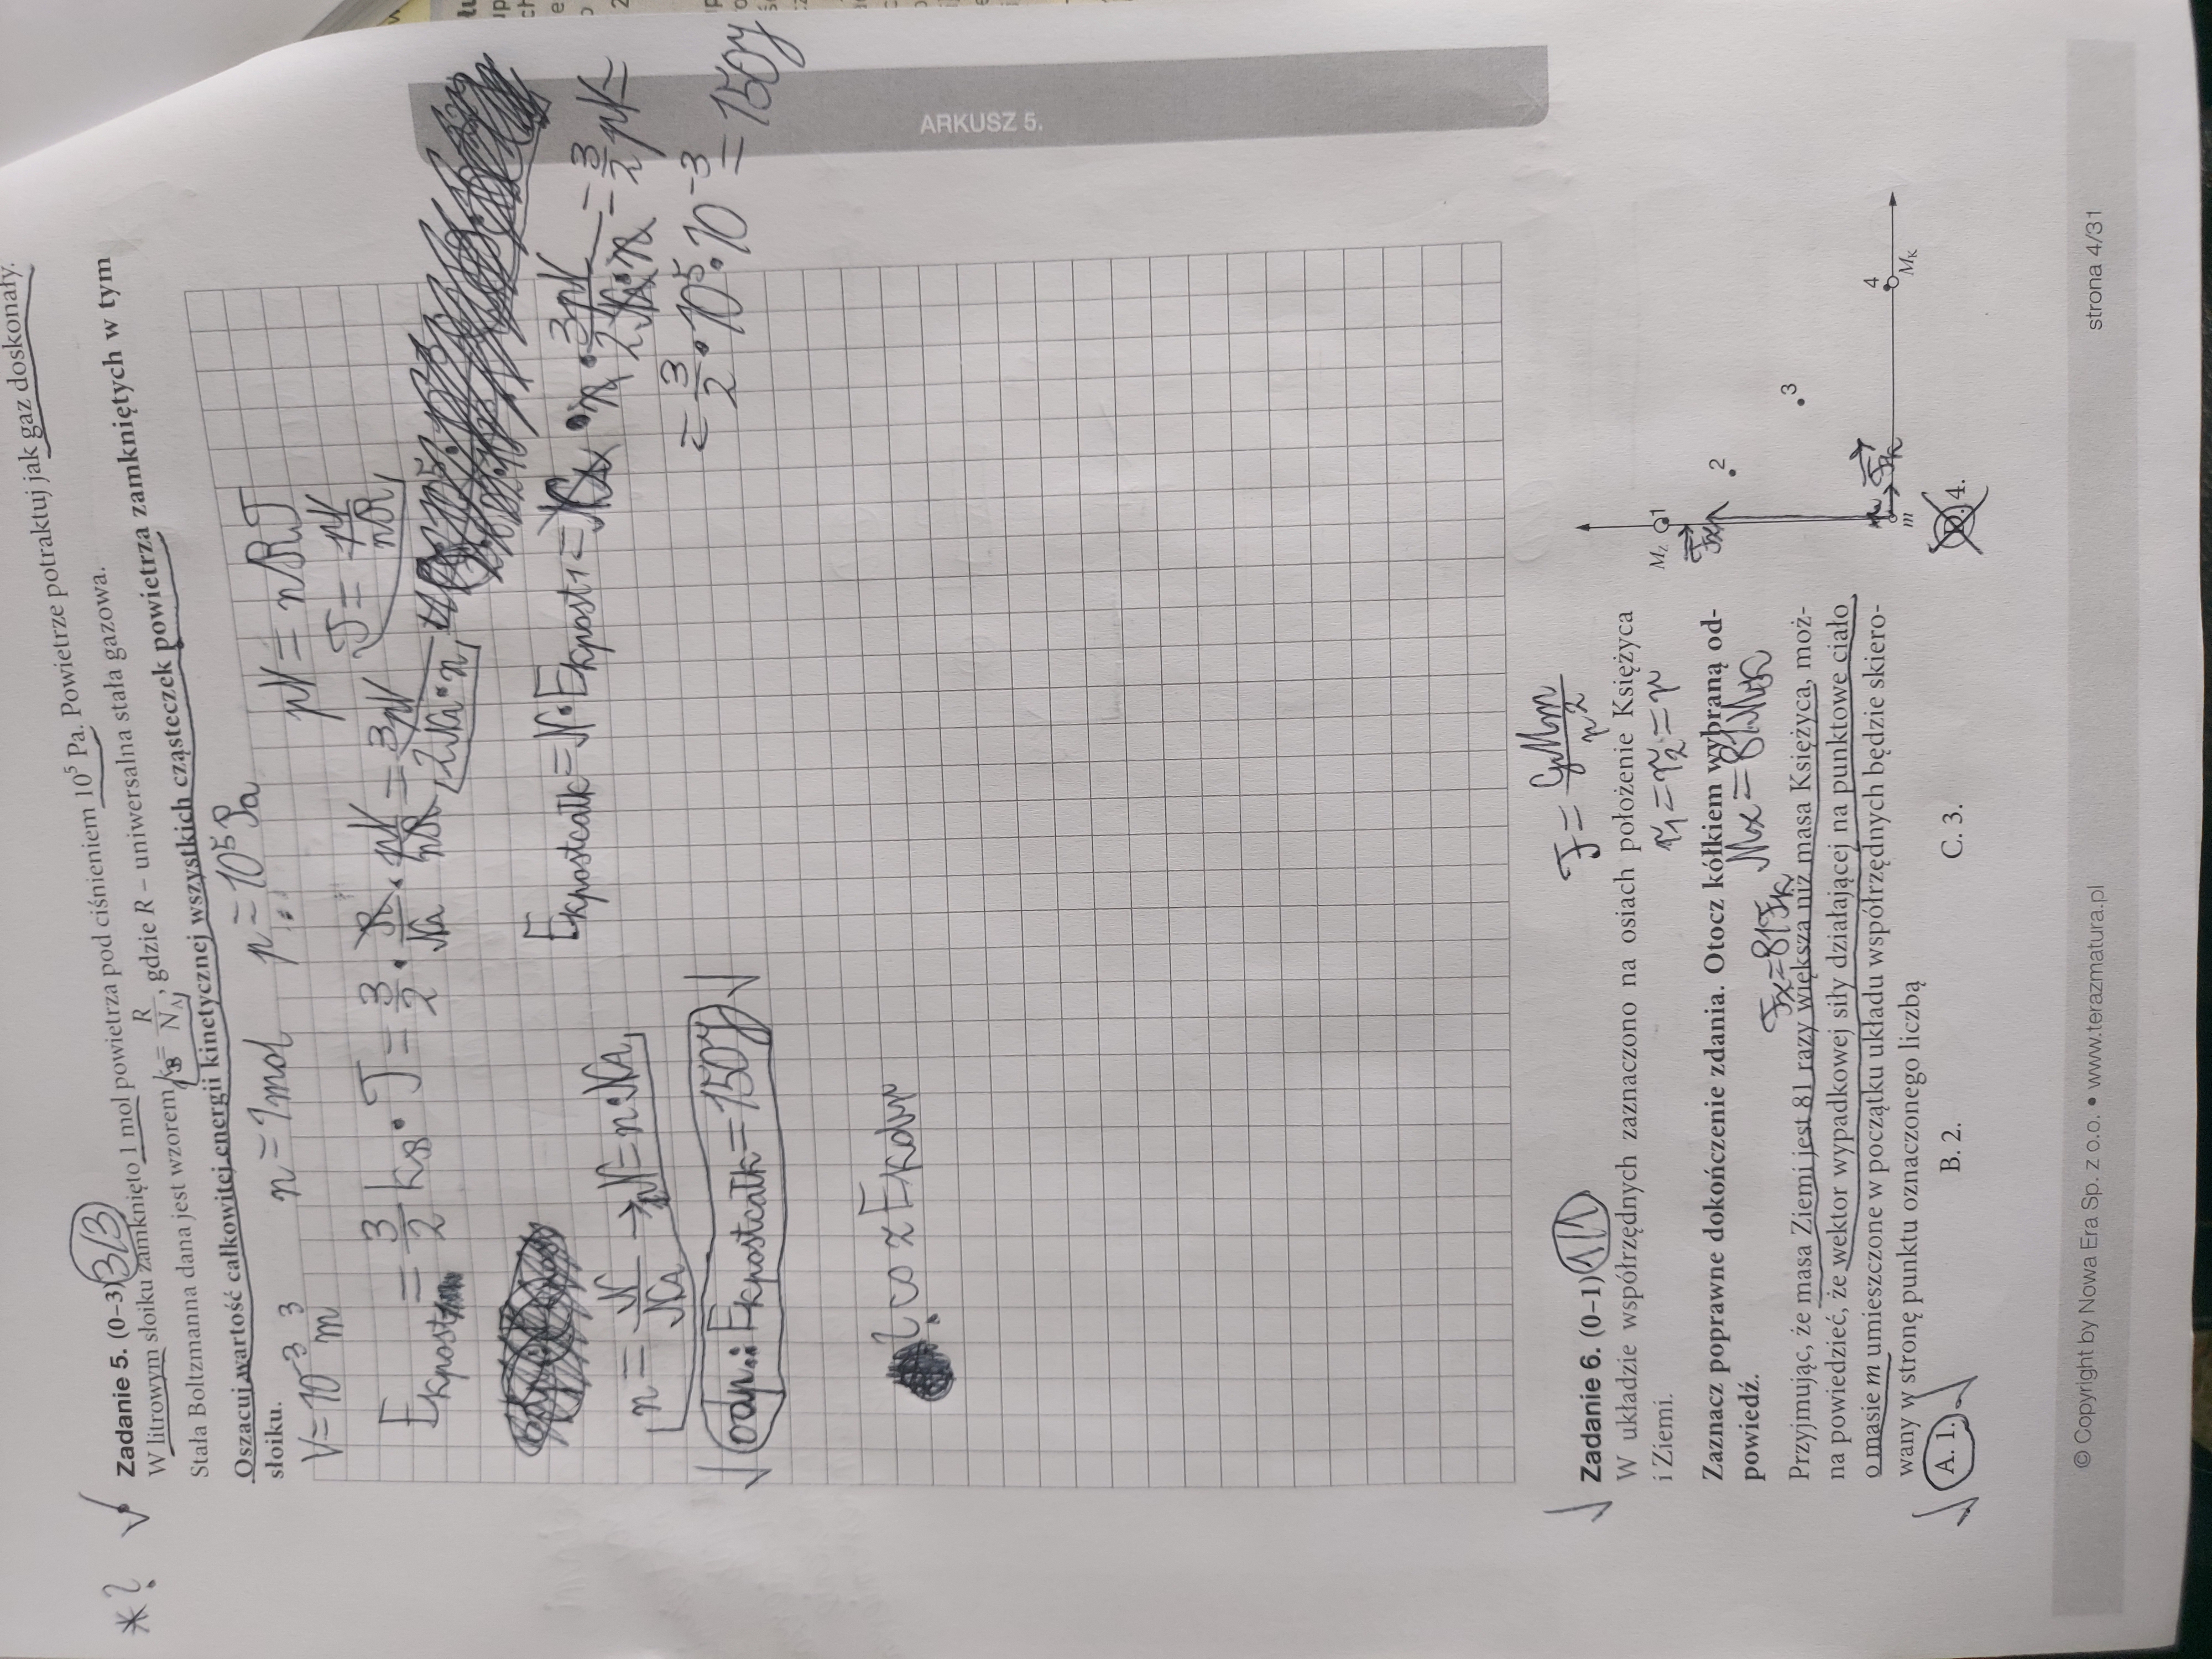 Zadanie 5. (0–3) 3/3
*? ✓
W litrowym słoiku zamknięto 1 mol powietrza pod ciśnieniem 10⁵ Pa. Powietrze potraktuj jak gaz doskonały.
Stała Boltzmanna dana jest wzorem k_B = R/N_A, gdzie R – uniwersalna stała gazowa.
Oszacuj wartość całkowitej energii kinetycznej wszystkich cząsteczek powietrza zamkniętych w tym
słoiku.
V = 10⁻³ m³ n = 1 mol p = 10⁵ Pa pV = nRT
E_kpost = 3/2 k_B · T = 3/2 · R/N_A · pV/nR = 3pV/2N_A·n T = pV/nR
E_kpostcałk = N · E_kpost1 = N_A · n · 3pV/2N_A·n = 3/2 pV
n = N/N_A → N = n · N_A = 3/2 · 10⁵ · 10⁻³ = 150J
✓ odp.: E_kpostcałk = 150J ✓
? co z E_kdr
ARKUSZ 5.
✓ Zadanie 6. (0–1) 1/1
F = GMm/r²
W układzie współrzędnych zaznaczono na osiach położenie Księżyca
i Ziemi.
r₁ = r₂ = r
Zaznacz poprawne dokończenie zdania. Otocz kółkiem wybraną od-
powiedź.
Przyjmując, że masa Ziemi jest 81 razy większa niż masa Księżyca, moż-
na powiedzieć, że wektor wypadkowej siły działającej na punktowe ciało
o masie m umieszczone w początku układu współrzędnych będzie skiero-
wany w stronę punktu oznaczonego liczbą
✓ A. 1. ✓ B. 2. C. 3. D. 4.
M_Z 1
2
3
4
m M_K
© Copyright by Nowa Era Sp. z o.o. • www.terazmatura.pl strona 4/31